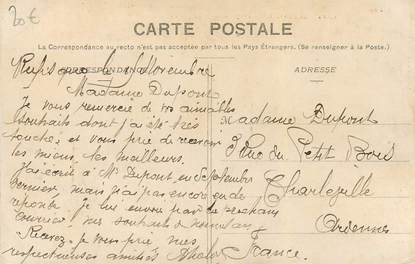 20€
CARTE POSTALE
La Correspondance au recto n'est pas acceptée par tous les Pays Étrangers. (Se renseigner à la Poste.)
CORRESPONDANCE
ADRESSE
Novembre
Madame Dupont
Je vous remercie de vos aimables
souhaits dont j'ai été très
touchée, et vous prie de recevoir
les miens, les meilleurs.
J'ai écrit à Mr Dupont, en Septembre
dernier, mais j'ai pas encore eu de
réponse je lui envoie par ce prochain
courrier. mes
Recevez, je vous prie, mes
respectueuses amitiés
Madame Dupont
3 Rue du Petit Bois
Charleville
Ardennes
France.